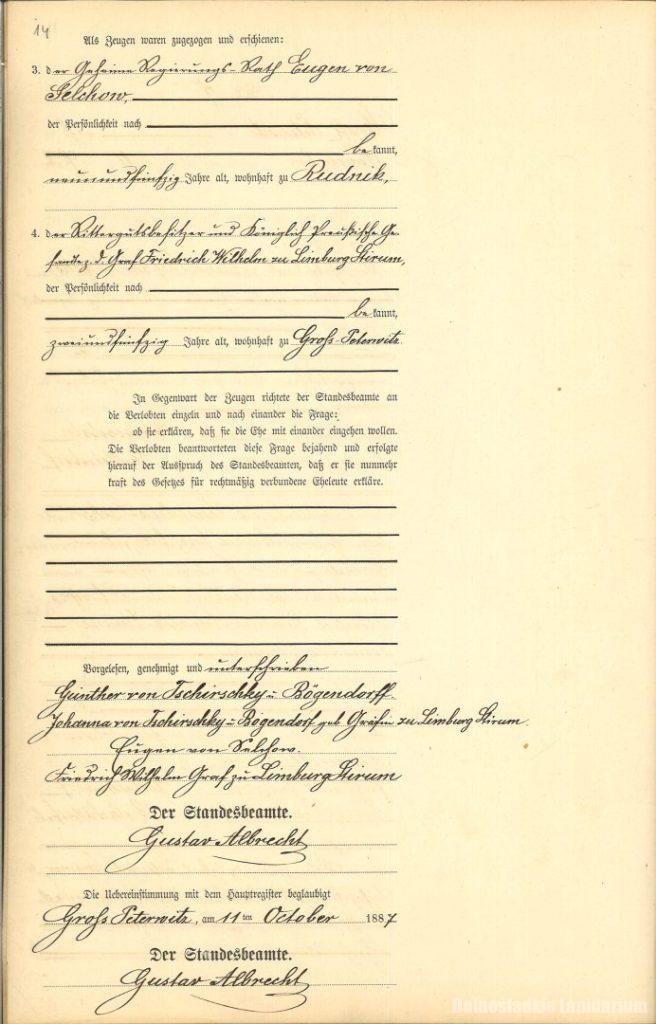 14
Als Zeugen waren zugezogen und erschienen:
3. der Geheime Regierungs-Rath Eugen von
Selchow,
der Persönlichkeit nach
bekannt,
neunundfünfzig Jahre alt, wohnhaft zu Rudnik,
4. der Rittergutsbesitzer und Königlich Preußische Ge-
sandte z. d. Graf Friedrich Wilhelm zu Limburg Stirum,
der Persönlichkeit nach
bekannt,
zweiundfünfzig Jahre alt, wohnhaft zu Groß-Peterwitz.
In Gegenwart der Zeugen richtete der Standesbeamte an
die Verlobten einzeln und nach einander die Frage:
ob sie erklären, daß sie die Ehe mit einander eingehen wollen.
Die Verlobten beantworteten diese Frage bejahend und erfolgte
hierauf der Ausspruch des Standesbeamten, daß er sie nunmehr
kraft des Gesetzes für rechtmäßig verbundene Eheleute erkläre.
Vorgelesen, genehmigt und unterschrieben
Günther von Tschirschky u. Bögendorff.
Johanna von Tschirschky u. Bögendorf geb Gräfin zu Limburg Stirum.
Eugen von Selchow.
Friedrich Wilhelm Graf zu Limburg Stirum
Der Standesbeamte.
Gustav Albrecht
Die Uebereinstimmung mit dem Hauptregister beglaubigt
Groß Peterwitz, am 11ten October 1887
Der Standesbeamte.
Gustav Albrecht
Dolnośląskie Lapidarium